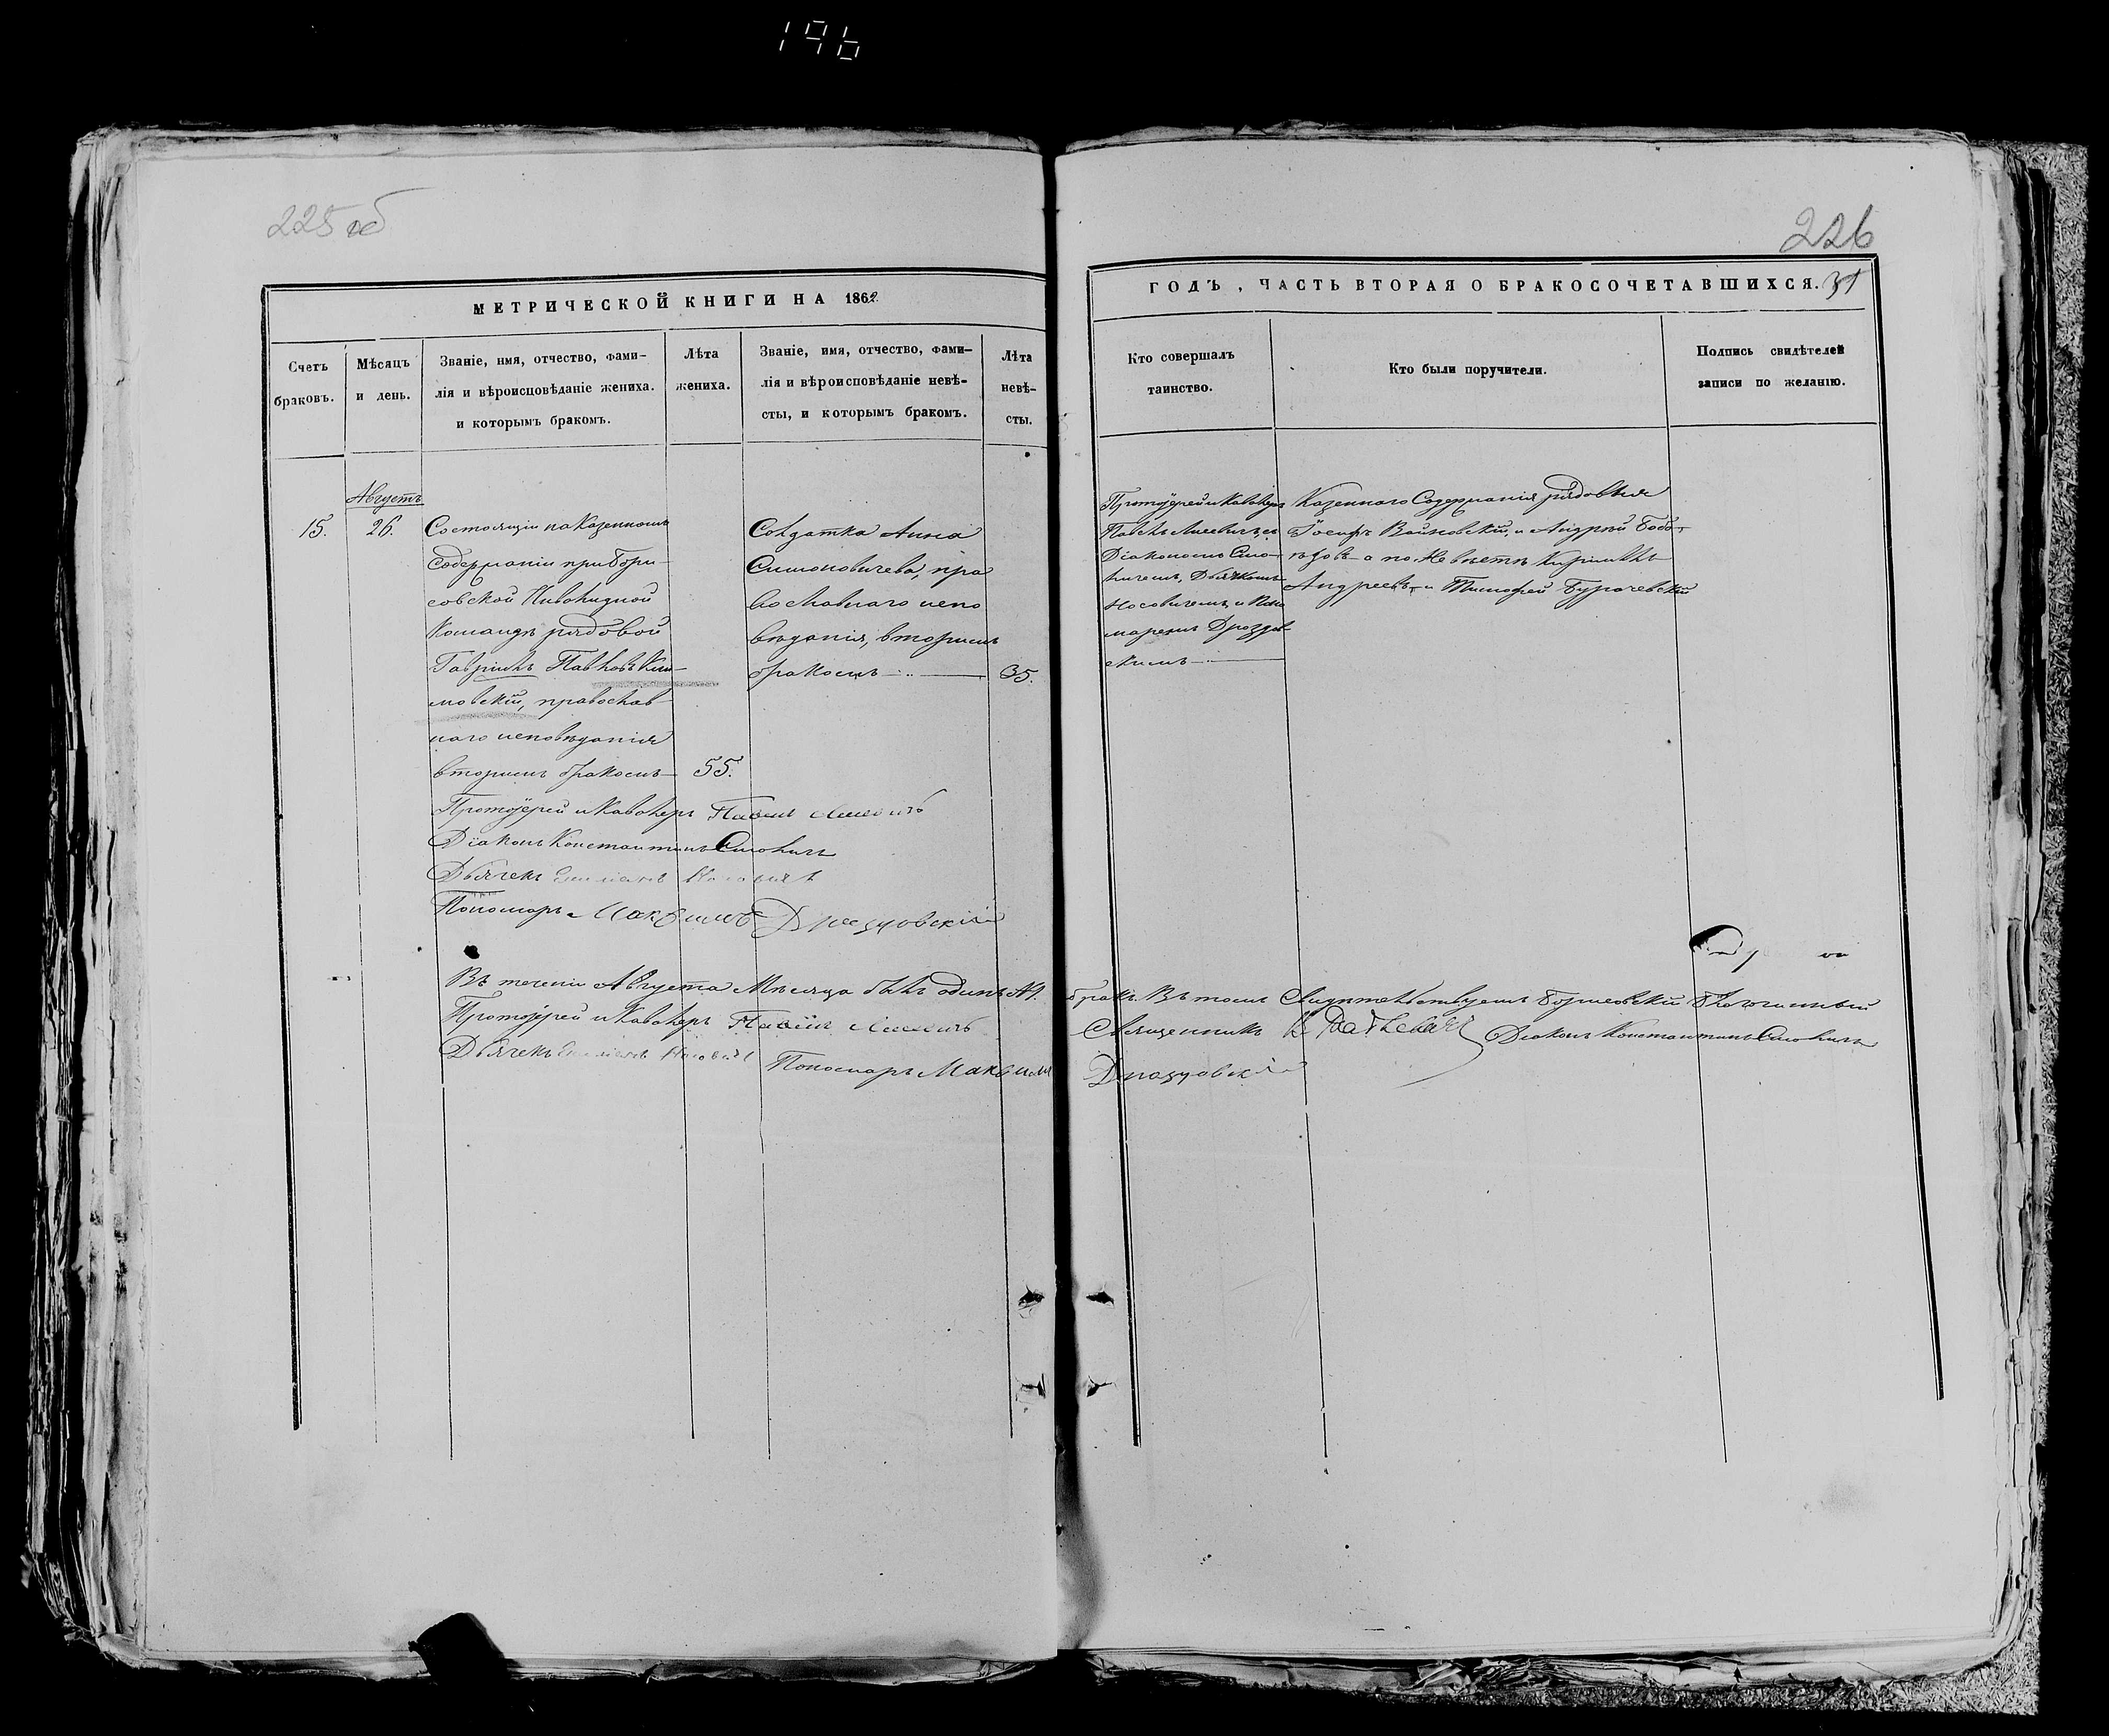 196
225 об
226
МЕТРИЧЕСКОЙ КНИГИ НА 1862
ГОДЪ, ЧАСТЬ ВТОРАЯ О БРАКОСОЧЕТАВШИХСЯ. 31
Счетъ браковъ.
Мѣсяцъ и день.
Званіе, имя, отчество, фами-
лія и вѣроисповѣданіе жениха.
и которымъ бракомъ.
Лѣта жениха.
Званіе, имя, отчество, фами-
лія и вѣроисповѣданіе невѣ-
сты, и которымъ бракомъ.
Лѣта
невѣ-
сты.
Кто совершалъ
таинство.
Кто были поручители.
Подпись свидѣтелей
записи по желанію.
Августъ
15.
26.
Состоящій на Казенномъ
Содержаніи при Бори-
совской Инвалидной
Командѣ рядовой
Гавріилъ Павловъ Кли-
мовскій, православ-
наго исповѣданія
вторымъ бракомъ
55.
Солдатка Анна
Симоновичева, пра
вославнаго испо
вѣданія, вторымъ
бракомъ
35.
Протоіерей и Кавалеръ
Павелъ съ
Діакономъ Смо-
личемъ, Дьячкомъ
Носовичемъ и Поно
маремъ Дроздов-
скимъ
Казеннаго Содержанія рядовые
Іосифъ Войновскій, и Андрей Бобо-
ѣдовъ а по Невѣстѣ Кириллъ
Андреевъ, и Тимофей Бурачевскій
Протоіерей и Кавалеръ Павелъ
Діаконъ Константинъ Смоличъ
Дьячекъ Носовичъ
Пономарь Максимъ Дроздовскій
Въ теченіи Августа Мѣсяца былъ одинъ №1. бракъ. Въ томъ Свидѣтельствуетъ Борисовскій Благочинный
Протоіерей и Кавалеръ Павелъ Священникъ Діаконъ Константинъ Смоличъ
Дьячекъ Носовичъ Пономарь Максимъ Дроздовскій